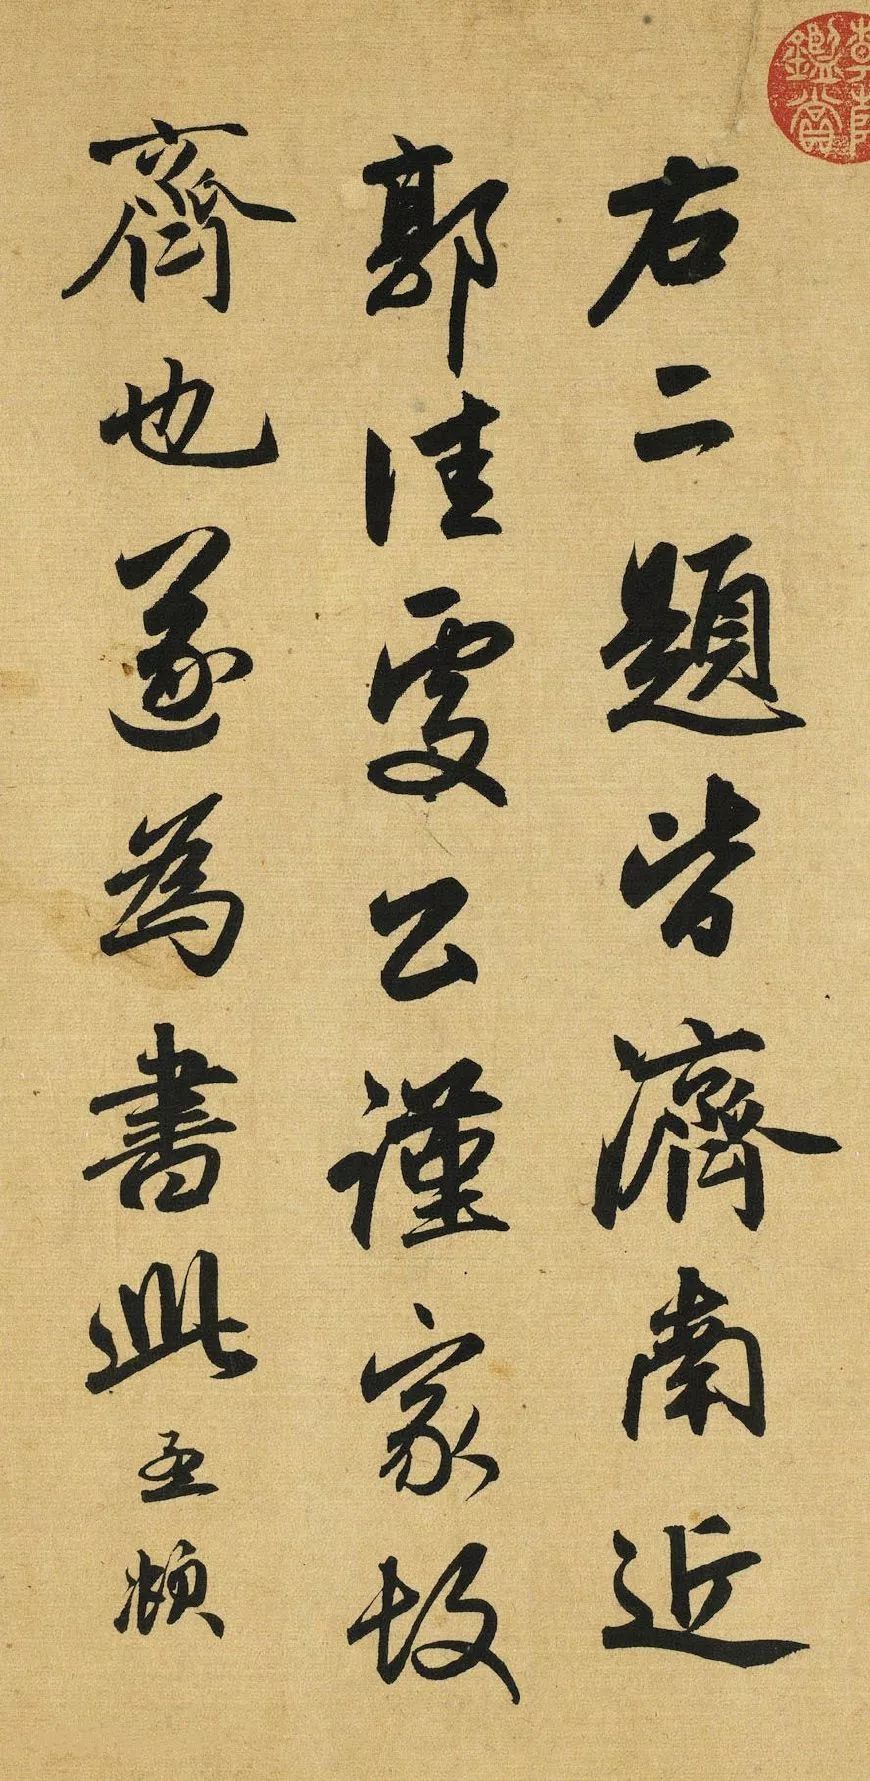 鑑賞
右二題皆濟南近
郭佳處公謹家故
齊也遂為書此孟頫